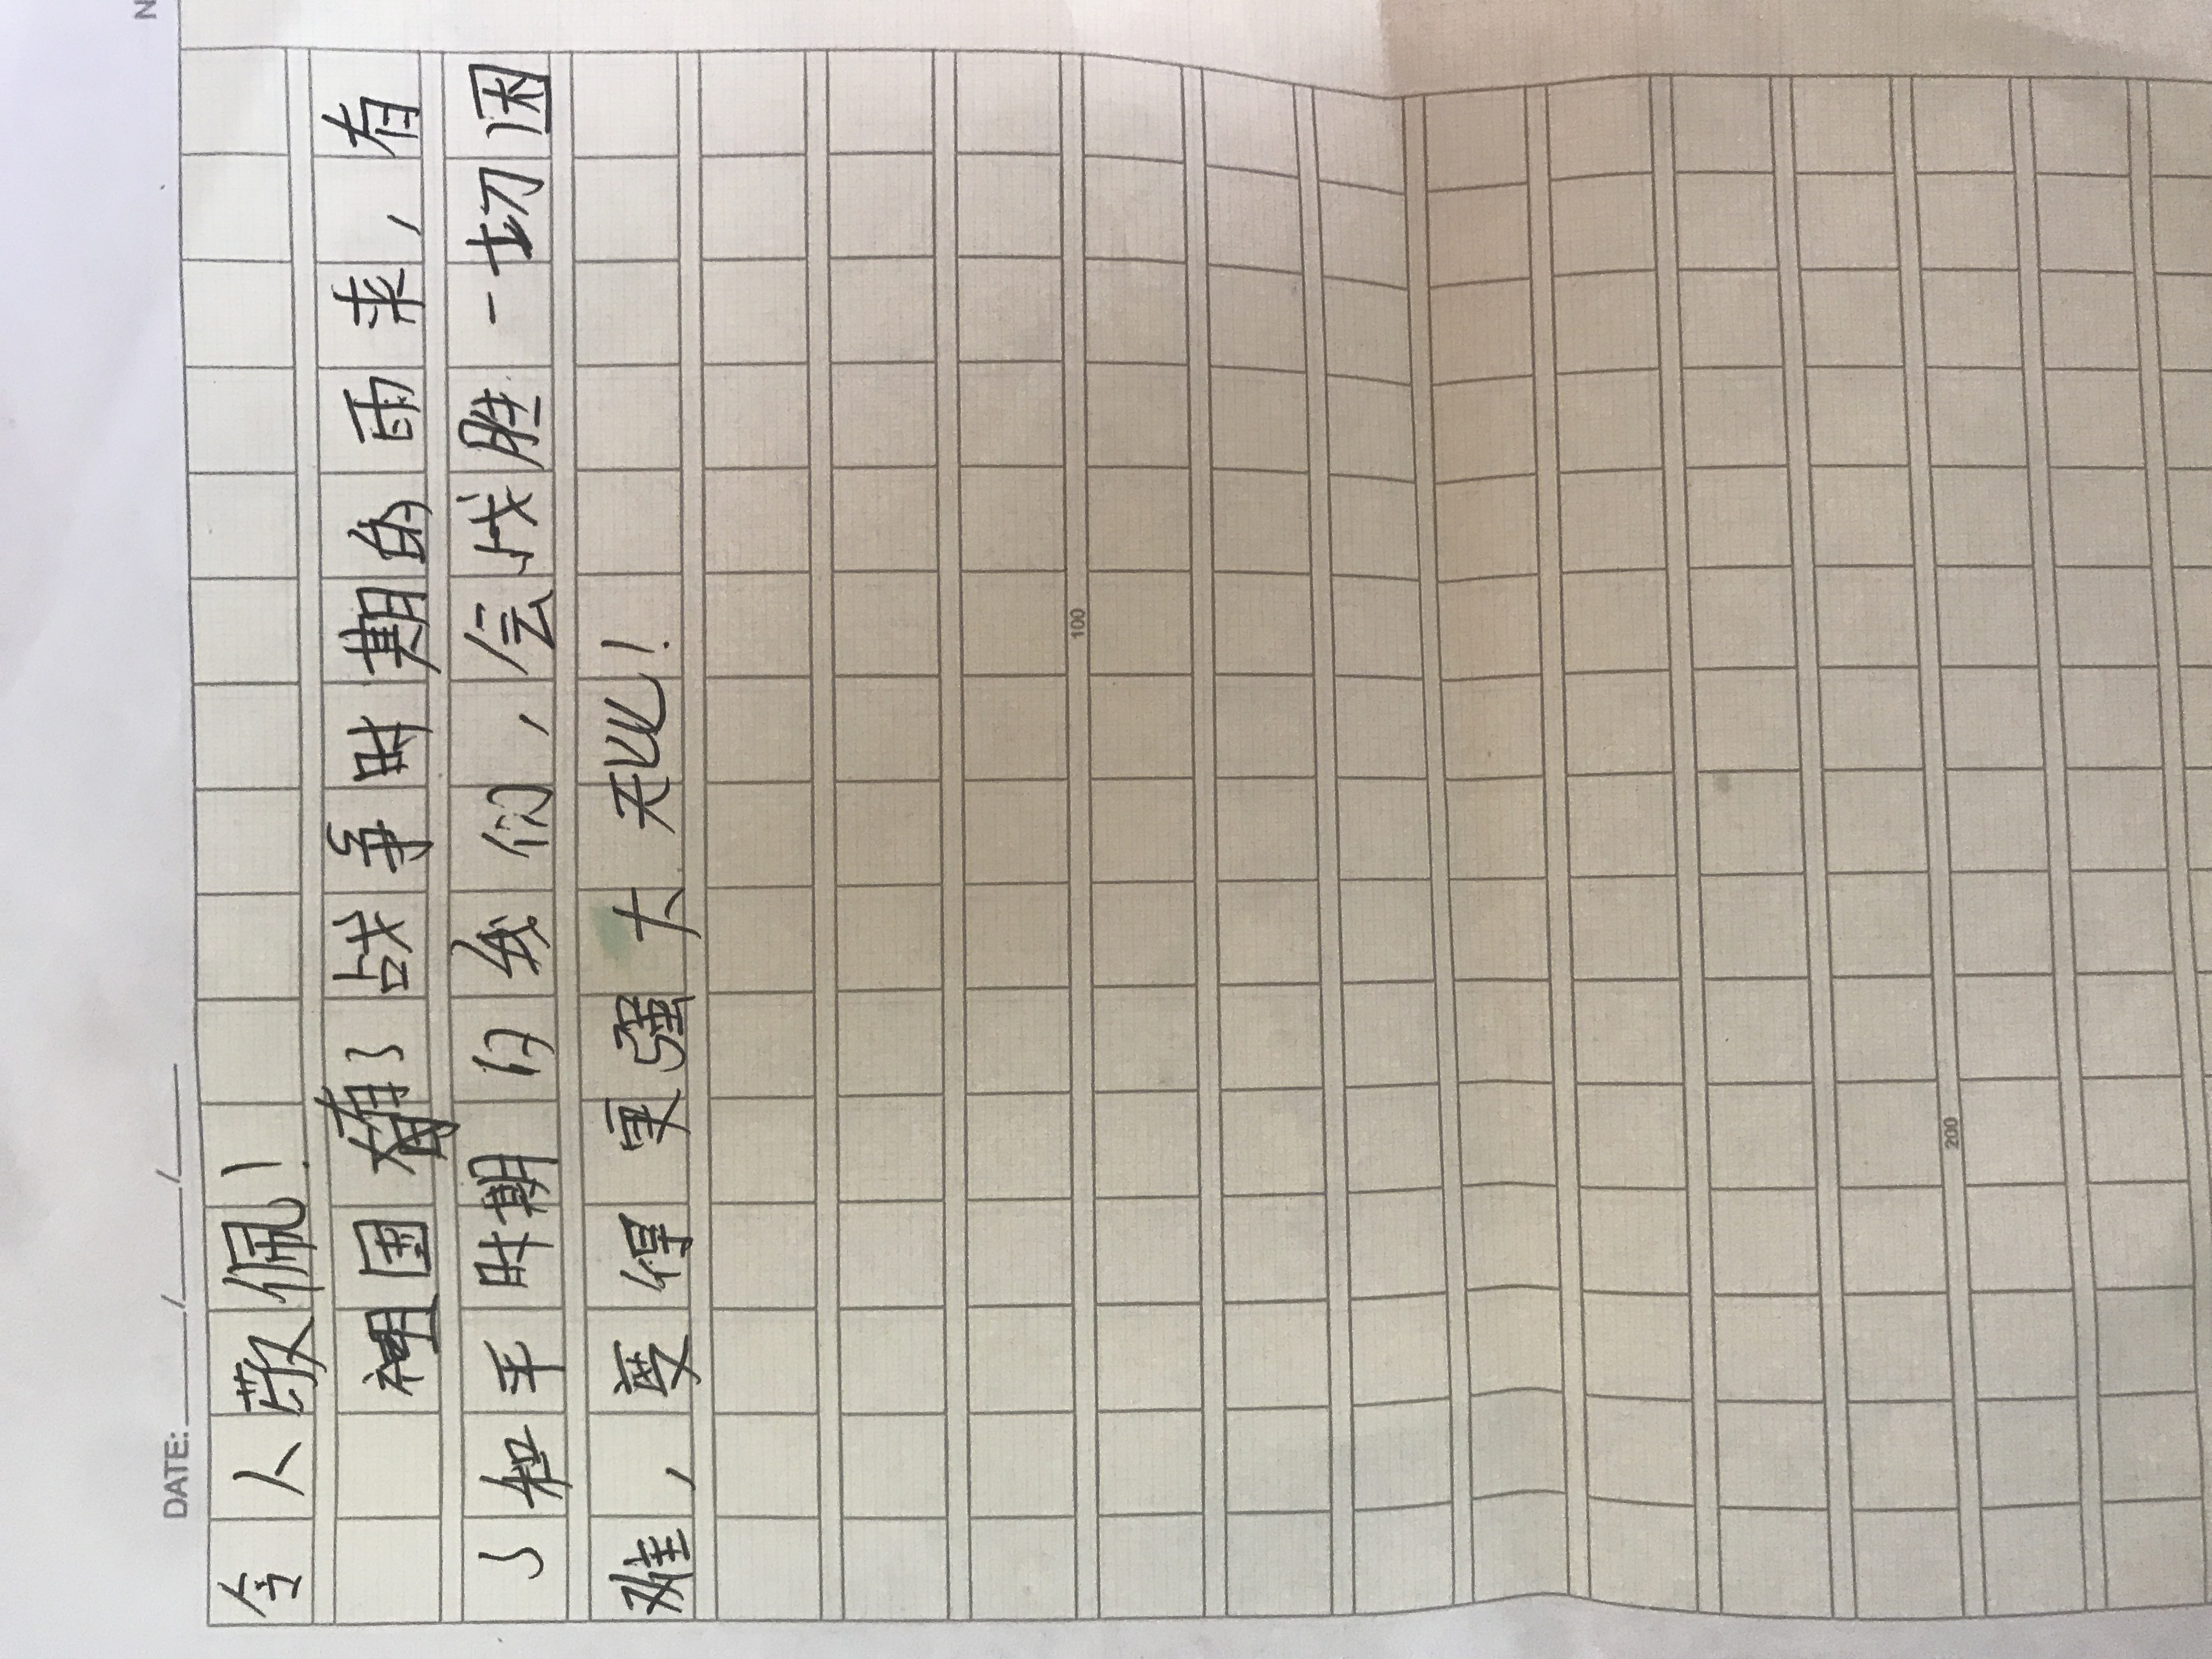 DATE: ____/____/____
令人敬佩!
祖国有了战争时期的雨来,有
了和平时期的我们,会战胜一切困
难,变得更强大无比!
100
200